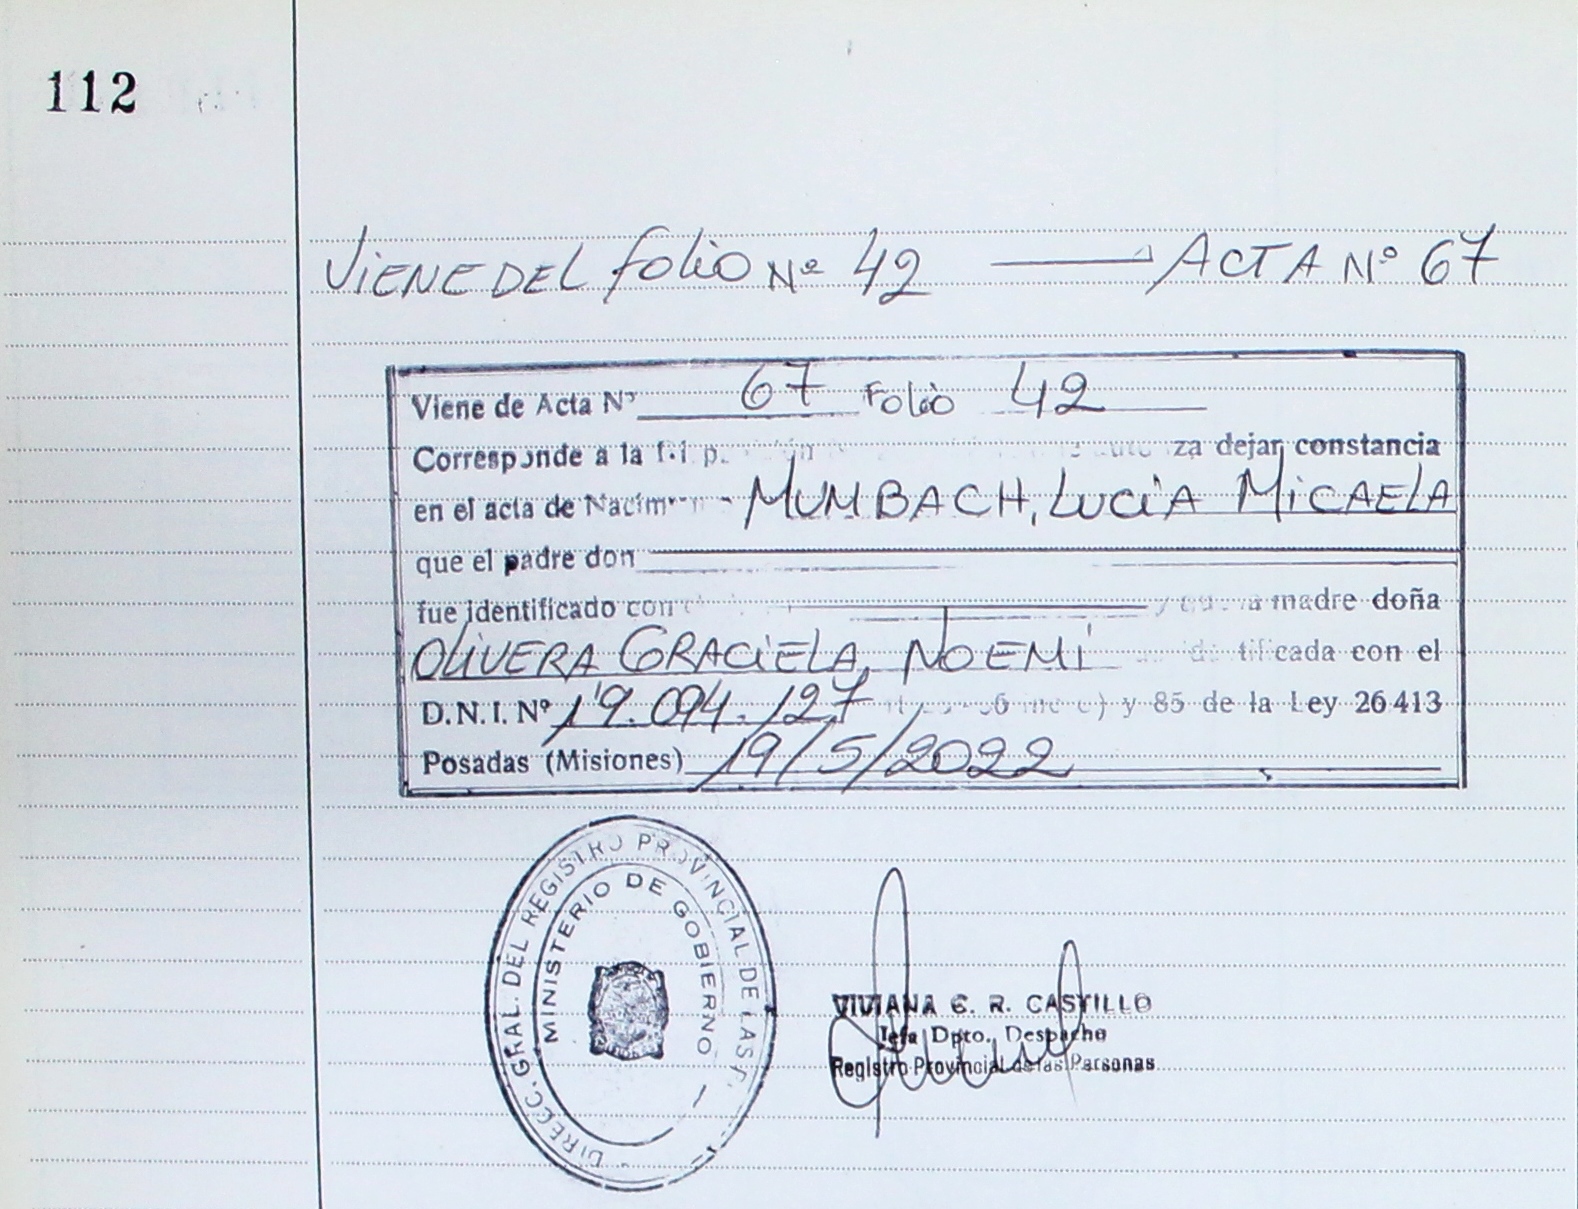 112
VIENE DEL folio Nº 42 —— ACTA Nº 67
Viene de Acta Nº 67 Folio 42
Corresponde a la dejar constancia
en el acta de MUMBACH, LUCIA MICAELA
que el padre don
fue identificado con madre doña
OLIVERA GRACIELA, NOEMI cada con el
D.N.I. Nº 19.094.127 y 85 de la Ley 26413
Posadas (Misiones) 19/5/2022
DIRECC. GRAL. DEL REGISTRO PROVINCIAL DE LAS P.
MINISTERIO DE GOBIERNO
VIVIANA C. R. CASTILLO
Jefa Dpto. Despacho
Registro Provincial de las Personas